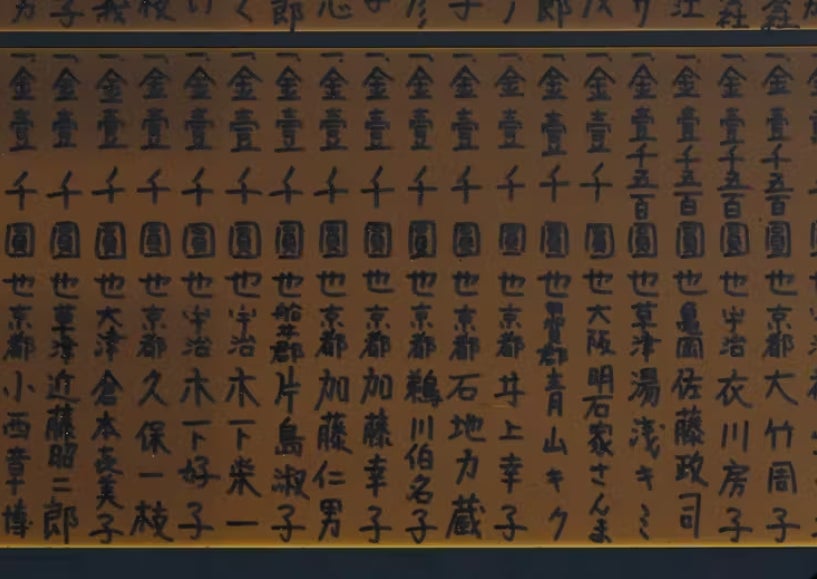 一金壹千五百圓也京都大竹周子
一金壹千五百圓也宇治衣川房子
一金壹千五百圓也亀岡佐藤政司
一金壹千五百圓也草津湯浅キミ
一金壹千圓也大阪明石家さんま
一金壹千圓也愛知郡青山キク
一金壹千圓也京都井上幸子
一金壹千圓也京都石地力蔵
一金壹千圓也京都鵜川伯名子
一金壹千圓也京都加藤幸子
一金壹千圓也京都加藤仁男
一金壹千圓也船井郡片島淑子
一金壹千圓也宇治木下柴一
一金壹千圓也宇治木下好子
一金壹千圓也京都久保一枝
一金壹千圓也大津倉本喜美子
一金壹千圓也草津近藤昭二郎
一金壹千圓也京都小西章博